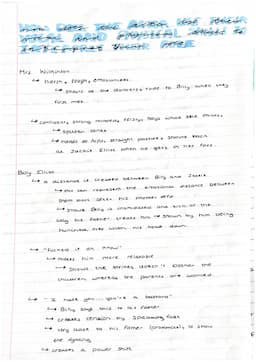 HOW DOES THE ACTOR USE THEIR
VOCAL AND PHYSICAL SKILLS TO
INTERPRET THEIR ROLE
Mrs. Wilkinson
↳ Harsh, rough, emotionless.
↳ shown as she demonstr rude to Billy when they
first met.
↳ confident, strong minded, feisty, says whole able phrases,
↳ spoken tones
↳ heads at high, straight posture, shows when
as Jackie Elliot when he gets in her face.
Billy Elliot
↳ a distance is created between Billy and Jackie.
↳ this can represent the emotional distance between
them both after his mother died.
↳ shows Billy is intimidated and sick of the
way his father treats him → shown by him being
hunched over when his head down.
↳ "Fucked if an know"
↳ makes him more relatable
↳ shows the strikes didn't bother the
children whereas the parents are worried.
↳ "I hate you... you're a bastard"
↳ Billy says this to his father.
↳ creates tension by speaking fast
↳ Very close to his father (proxemics), to show
the fighting
↳ creates a power shift